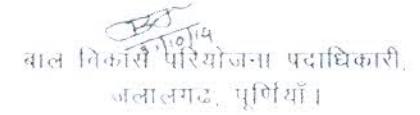 बाल विकास परियोजना पदाधिकारी,
जलालगढ, पूर्णियाँ।